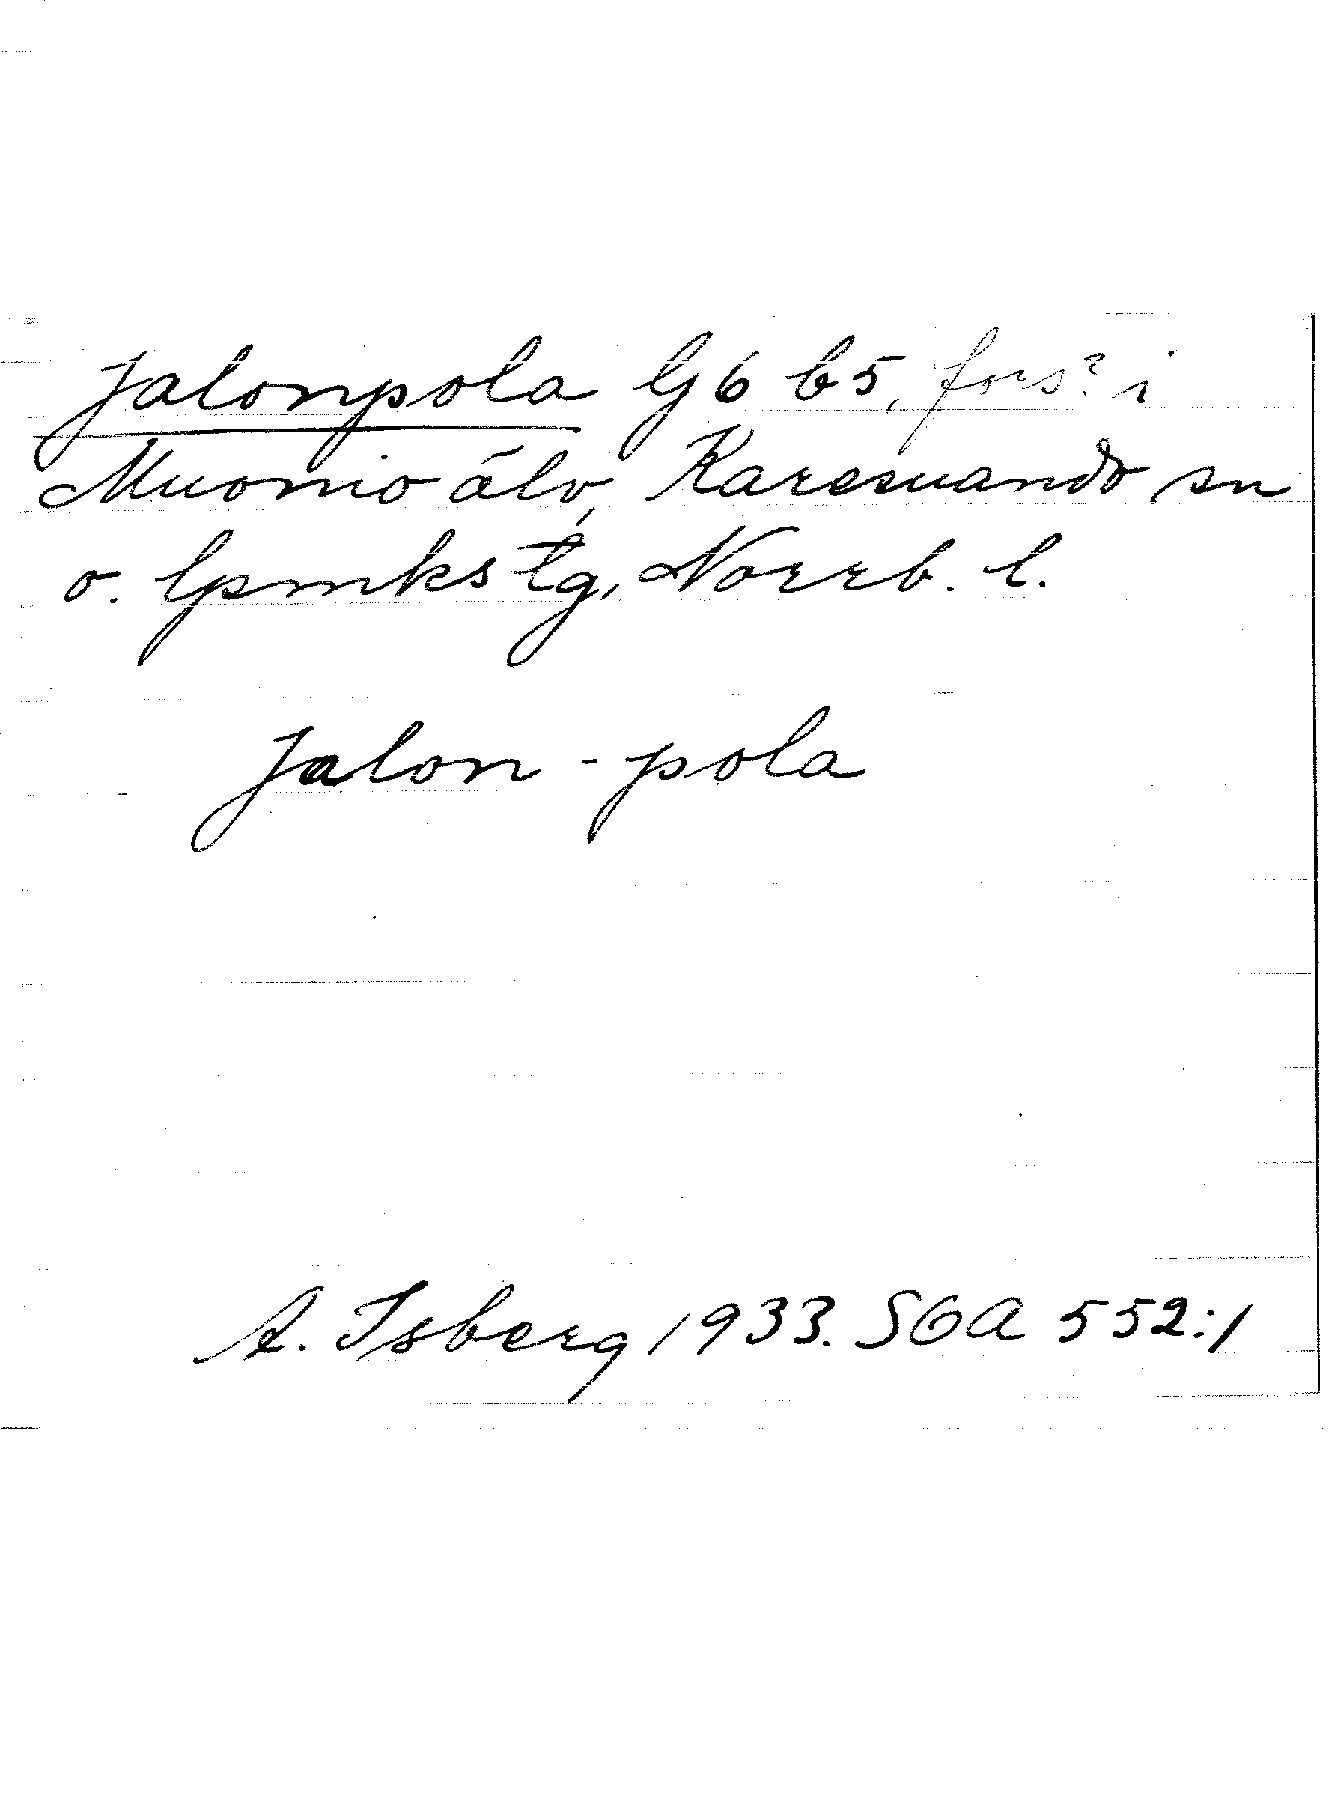 Jalonpola lj 6 b5, fors? i
Muonio älv, Karesuando sn
o. lpmkstg, Norrb. l.
Jalon - pola
A. Isberg 1933. SOA 552:1